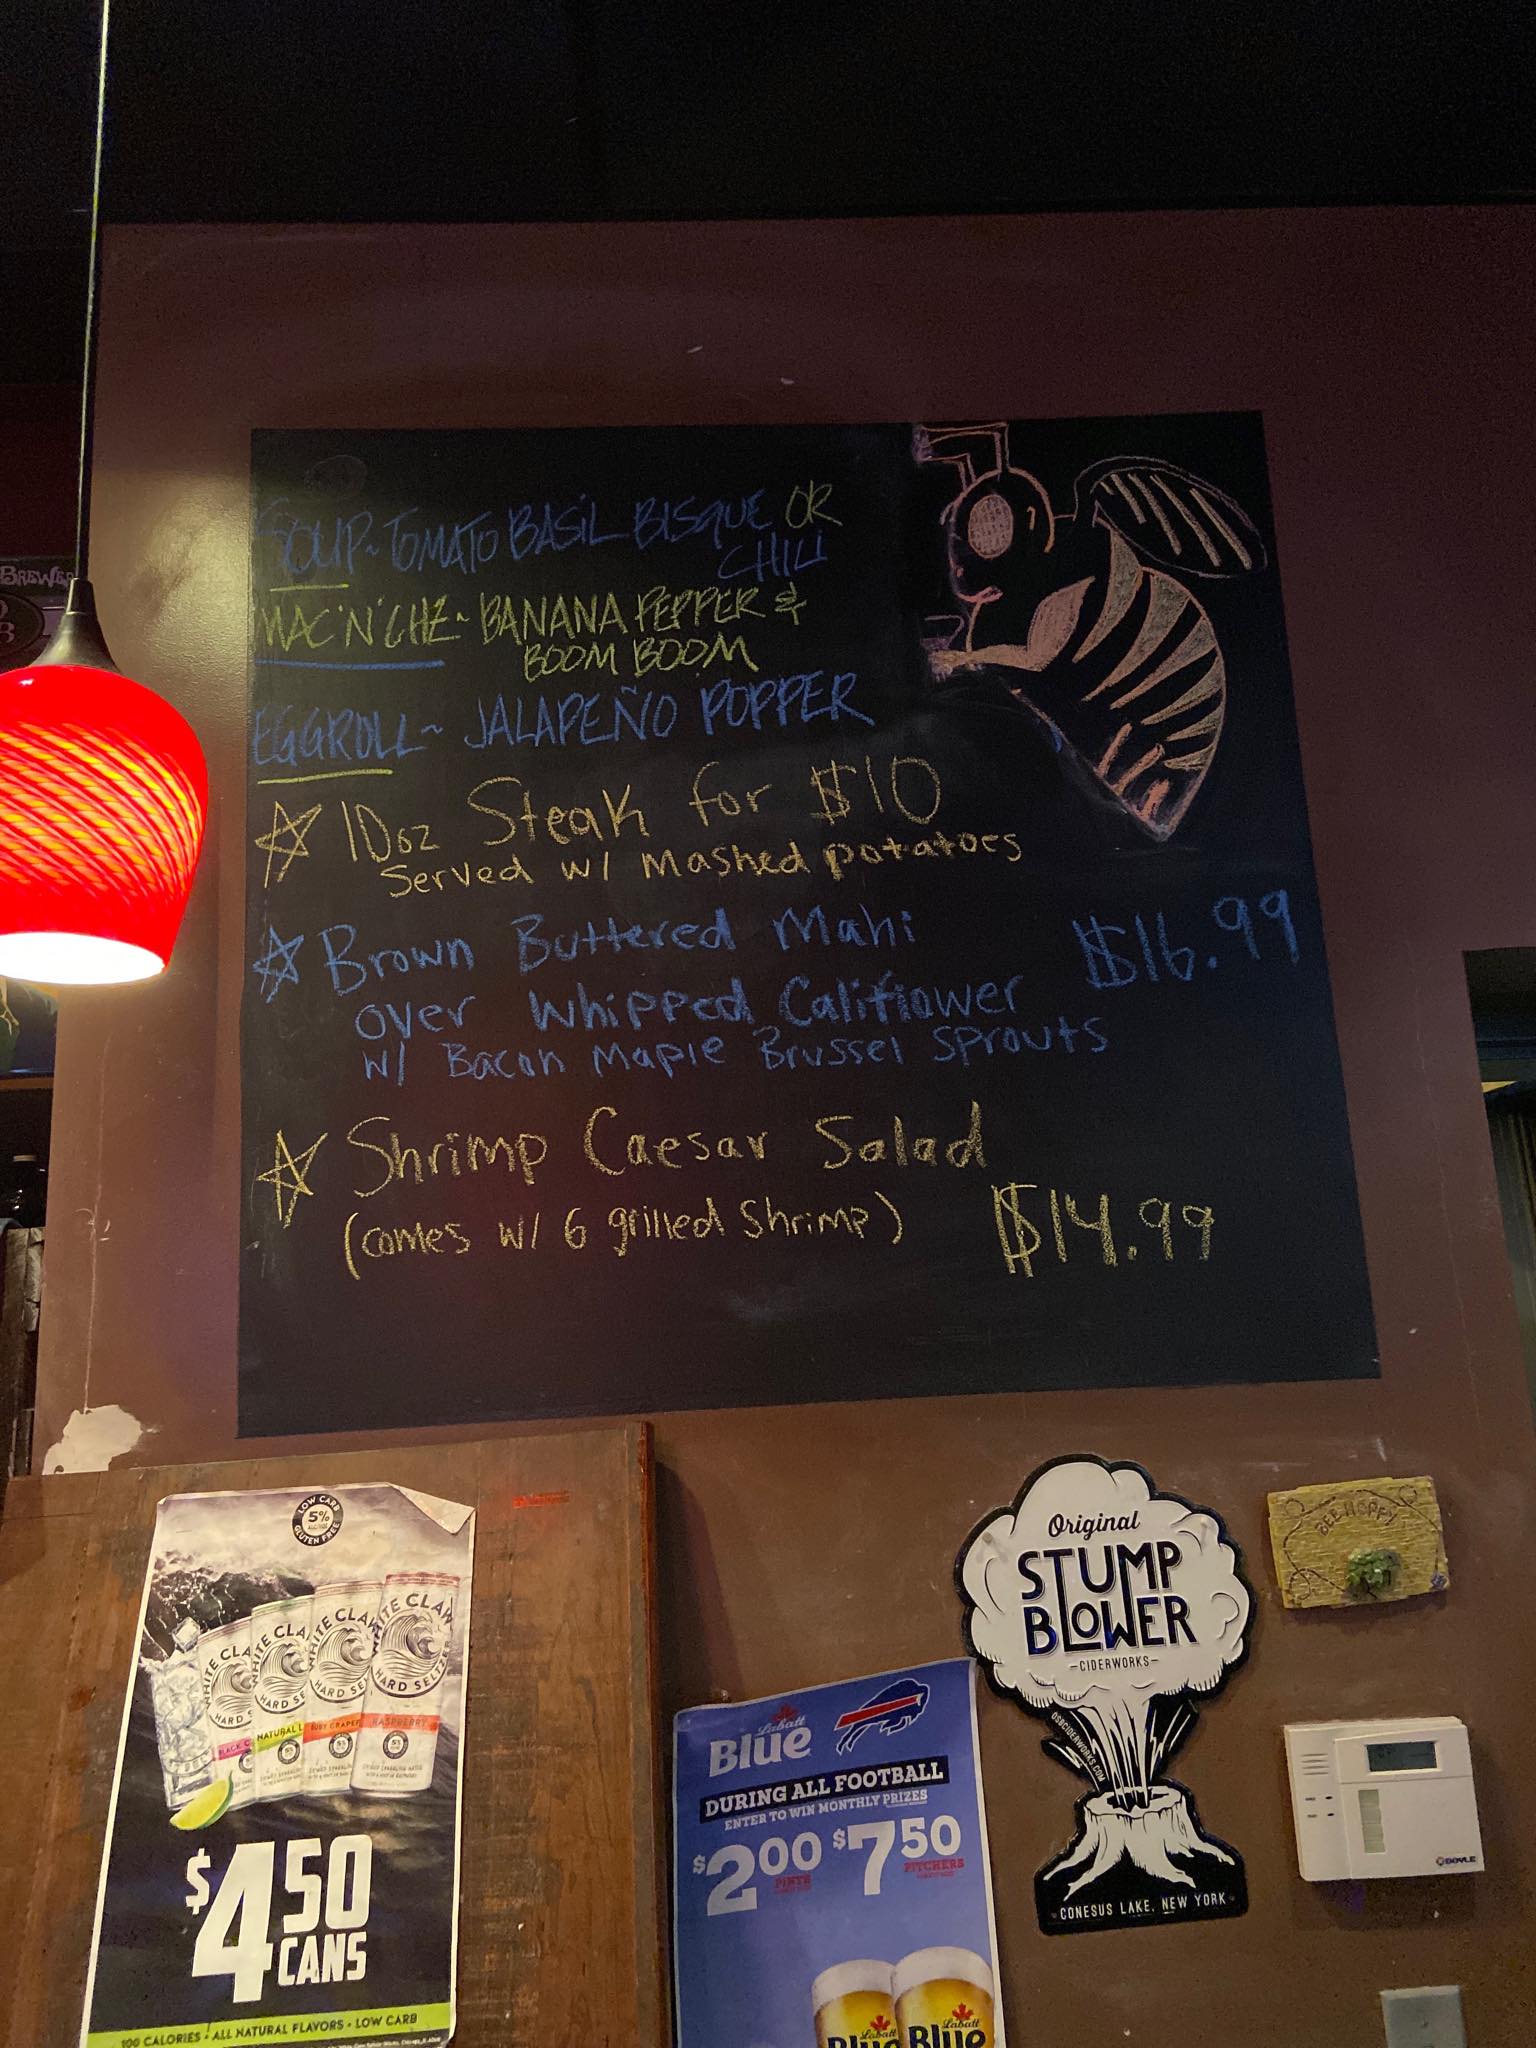 SOUP~TOMATO BASIL BISQUE OR
CHILI
MAC'N'CHZ~ BANANA PEPPER &
BOOM BOOM
EGGROLL~ JALAPEÑO POPPER
10oz Steak for $10
Served w/ Mashed potatoes
Brown Buttered Mahi
$16.99
over Whipped Califlower
w/ Bacon Maple Brussel sprouts
Shrimp Caesar Salad
(comes w/ 6 grilled Shrimp)
$14.99
BREWER
LOW CARB
5%
GLUTEN FREE
WHITE CLAW
HARD SELTZER
WHITE CLA
HARD SE
NATURAL L
WHITE CLA
HARD SE
RUBY GRAPEF
WHITE CLAW
HARD SELTZER
RASPBERRY
$4.50
CANS
100 CALORIES • ALL NATURAL FLAVORS • LOW CARB
Labatt
Blue
DURING ALL FOOTBALL
ENTER TO WIN MONTHLY PRIZES
$2.00 PINTS
$7.50 PITCHERS
Labatt
Blue
Labatt
Blue
Original
STUMP
BLOWER
—CIDERWORKS—
OSBCIDERWORKS.COM
CONESUS LAKE, NEW YORK
BEE HOPPY
DOYLE